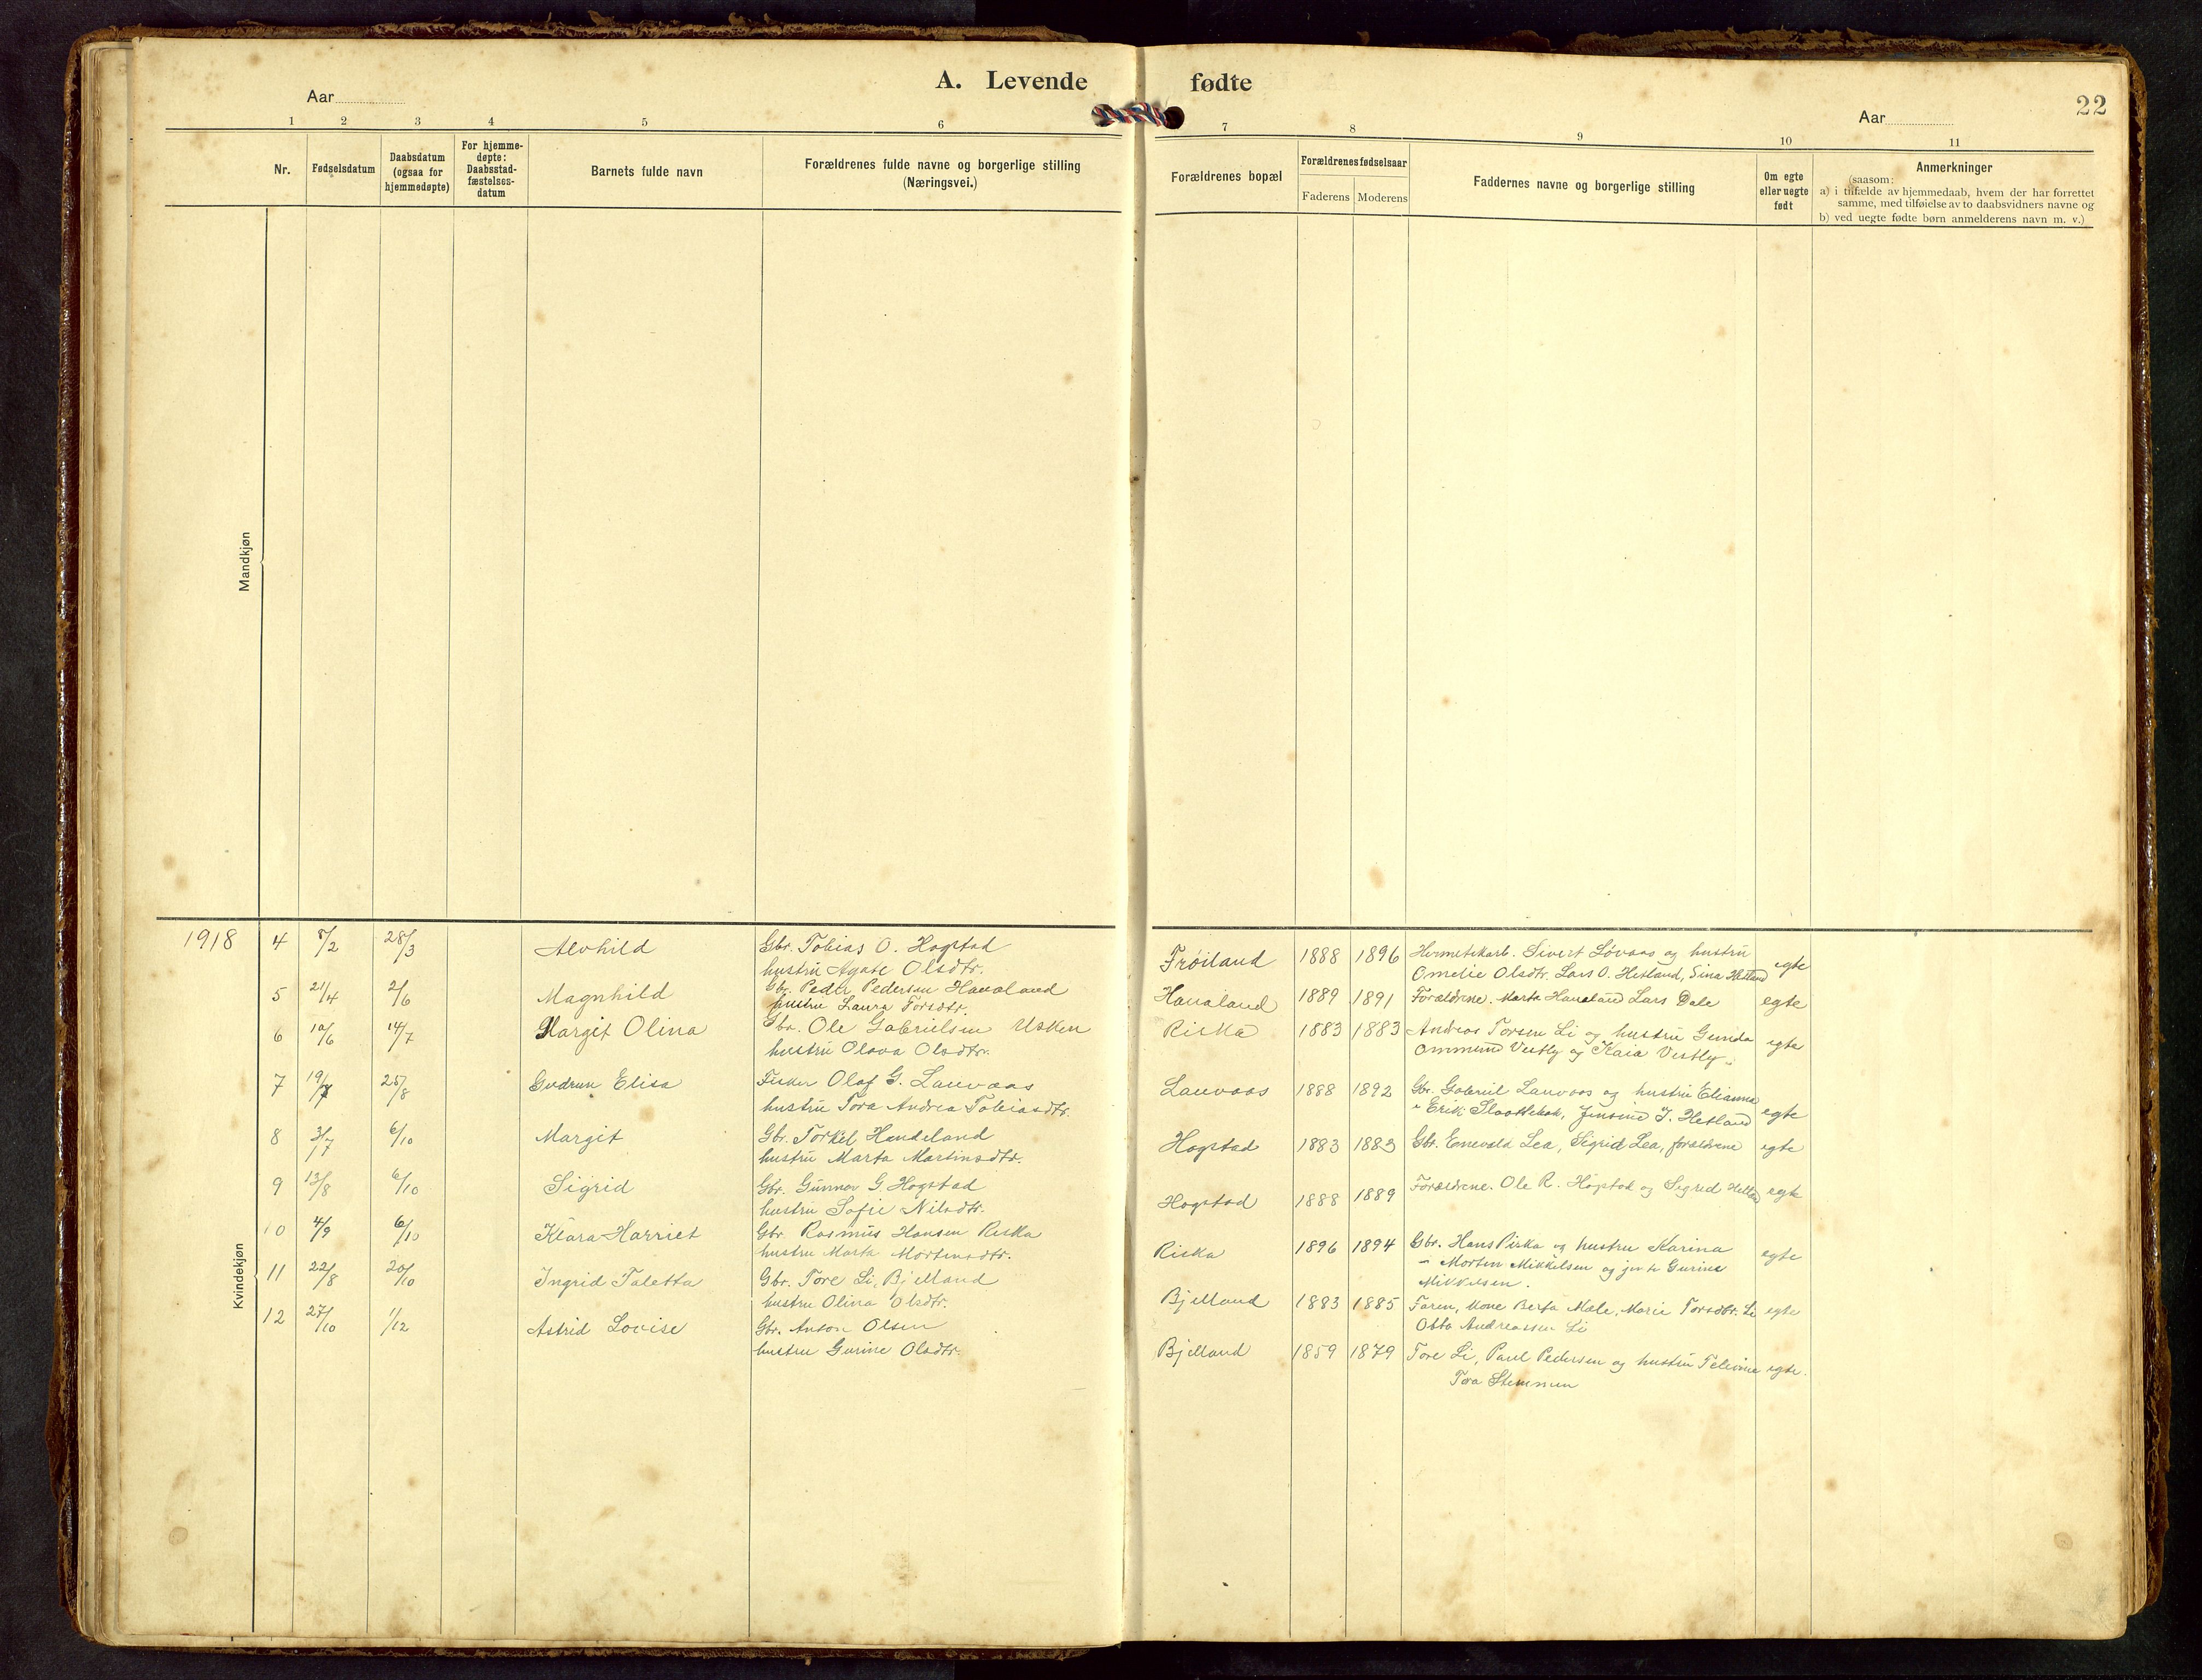 A. Levende fødte
22
Aar
Aar
1 2 3 4 5 6 7 8 9 10 11
Nr.
Fødselsdatum
Daabsdatum
(ogsaa for
hjemmedøpte)
For hjemme-
døpte:
Daabsstad-
fæstelses-
datum
Barnets fulde navn
Forældrenes fulde navne og borgerlige stilling
(Næringsvei.)
Forældrenes bopæl
Forældrenes fødselsaar
Faderens Moderens
Faddernes navne og borgerlige stilling
Om egte
eller uegte
født
Anmerkninger
(saasom:
a) i tilfælde av hjemmedaab, hvem der har forrettet
samme, med tilføielse av to daabsvidners navne og
b) ved uegte fødte børn anmelderens navn m. v.)
Mandkjøn
Kvindekjøn
1918 4 8/2 28/3 Alvhild Gbr. Tobias O. Hogstad Frøiland 1888 1896 Hermetikarb. Sivert Løvaas og hustru egte
hustru Agate Olsdtr. Omelie Olsdtr. Lars O. Hetland, Sina Hetland
5 21/4 2/6 Magnhild Gbr. Peder Pedersen Hanaland Hanaland 1889 1891 Forældrene. Marta Hanaland Lars Dale egte
hustru Laura Torsdtr.
6 10/6 14/7 Margit Olina Gbr. Ole Gabrielsen Usken Riska 1883 1883 Andreas Torsen Li og hustru Gunda egte
hustru Olava Olsdtr. Ommund Vestly og Kaia Vestly
7 19/7 25/8 Gudrun Elisa Fisker Olaf G. Lauvaas Lauvaas 1888 1892 Gbr. Gabriel Lauvaas og hustru Elianna egte
hustru Tora Andrea Tobiasdtr. " Erik Slaattebak, Jensine J. Hetland
8 3/7 6/10 Margit Gbr. Torkel Handeland Hogstad 1883 1883 Gbr. Enevald Lea, Sigrid Lea, forældrene egte
hustru Marta Martinsdtr.
9 13/8 6/10 Sigrid Gbr. Gunnar G. Hogstad Hogstad 1888 1889 Forældrene. Ole R. Hogstad og Sigrid Helland egte
hustru Sofie Nilsdtr.
10 4/9 6/10 Klara Harriet Gbr. Rasmus Hansen Riska Riska 1896 1894 Gbr. Hans Riska og hustru Karina egte
hustru Marta Mortensdtr. " Morten Mikkelsen og Gurine
Mikkelsen.
11 22/8 20/10 Ingrid Taletta Gbr. Tore Li, Bjelland Bjelland 1883 1885 Faren, kone Berta Mæle, Marie Torsdtr. Li egte
hustru Olina Olsdtr. Otto Andreassen Li
12 27/10 1/12 Astrid Lovise Gbr. Anton Olsen Bjelland 1859 1879 Tore Li, Paul Pedersen og hustru egte.
hustru Gurine Olsdtr. Tora Stemmen